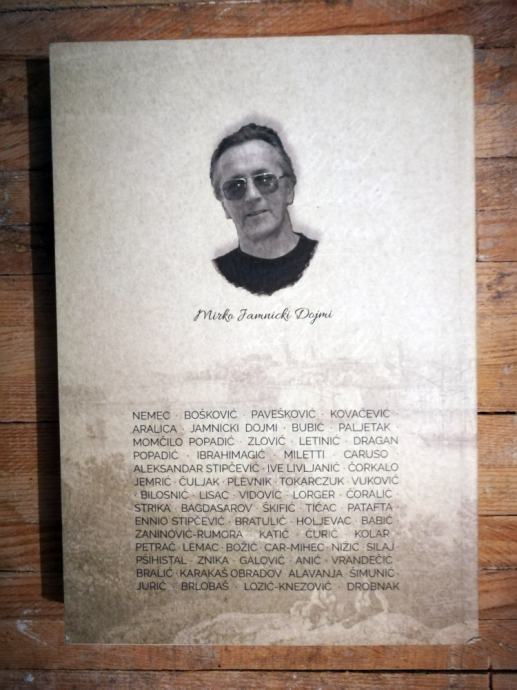 Mirko Jamnicki Dojmi
NEMEC · BOŠKOVIĆ · PAVEŠKOVIĆ · KOVAČEVIĆ ·
ARALICA · JAMNICKI DOJMI · BUBIĆ · PALJETAK
MOMČILO POPADIĆ · ZLOVIĆ · LETINIĆ · DRAGAN
POPADIĆ · IBRAHIMAGIĆ · MILETTI · CARUSO ·
ALEKSANDAR STIPČEVIĆ · IVE LIVLJANIĆ · ČORKALO
JEMRIĆ · ČULJAK · PLEVNIK · TOKARCZUK · VUKOVIĆ
· BILOSNIĆ · LISAC · VIDOVIĆ · LORGER · ĆORALIĆ
STRIKA · BAGDASAROV · ŠKIFIĆ · TIČAC · PATAFTA ·
ENNIO STIPČEVIĆ · BRATULIĆ · HOLJEVAC · BABIĆ ·
ZANINOVIĆ-RUMORA · KATIĆ · ĆURIĆ · KOLAR ·
PETRAČ · LEMAC · BOŽIĆ · CAR-MIHEC · NIŽIĆ · SILAJ
PŠIHISTAL · ZNIKA · GALOVIĆ · ANIĆ · VRANDEČIĆ ·
BRALIĆ · KARAKAŠ OBRADOV · ALAVANJA · ŠIMUNIĆ ·
JURIĆ · BRLOBAŠ · LOZIĆ-KNEZOVIĆ · DROBNAK